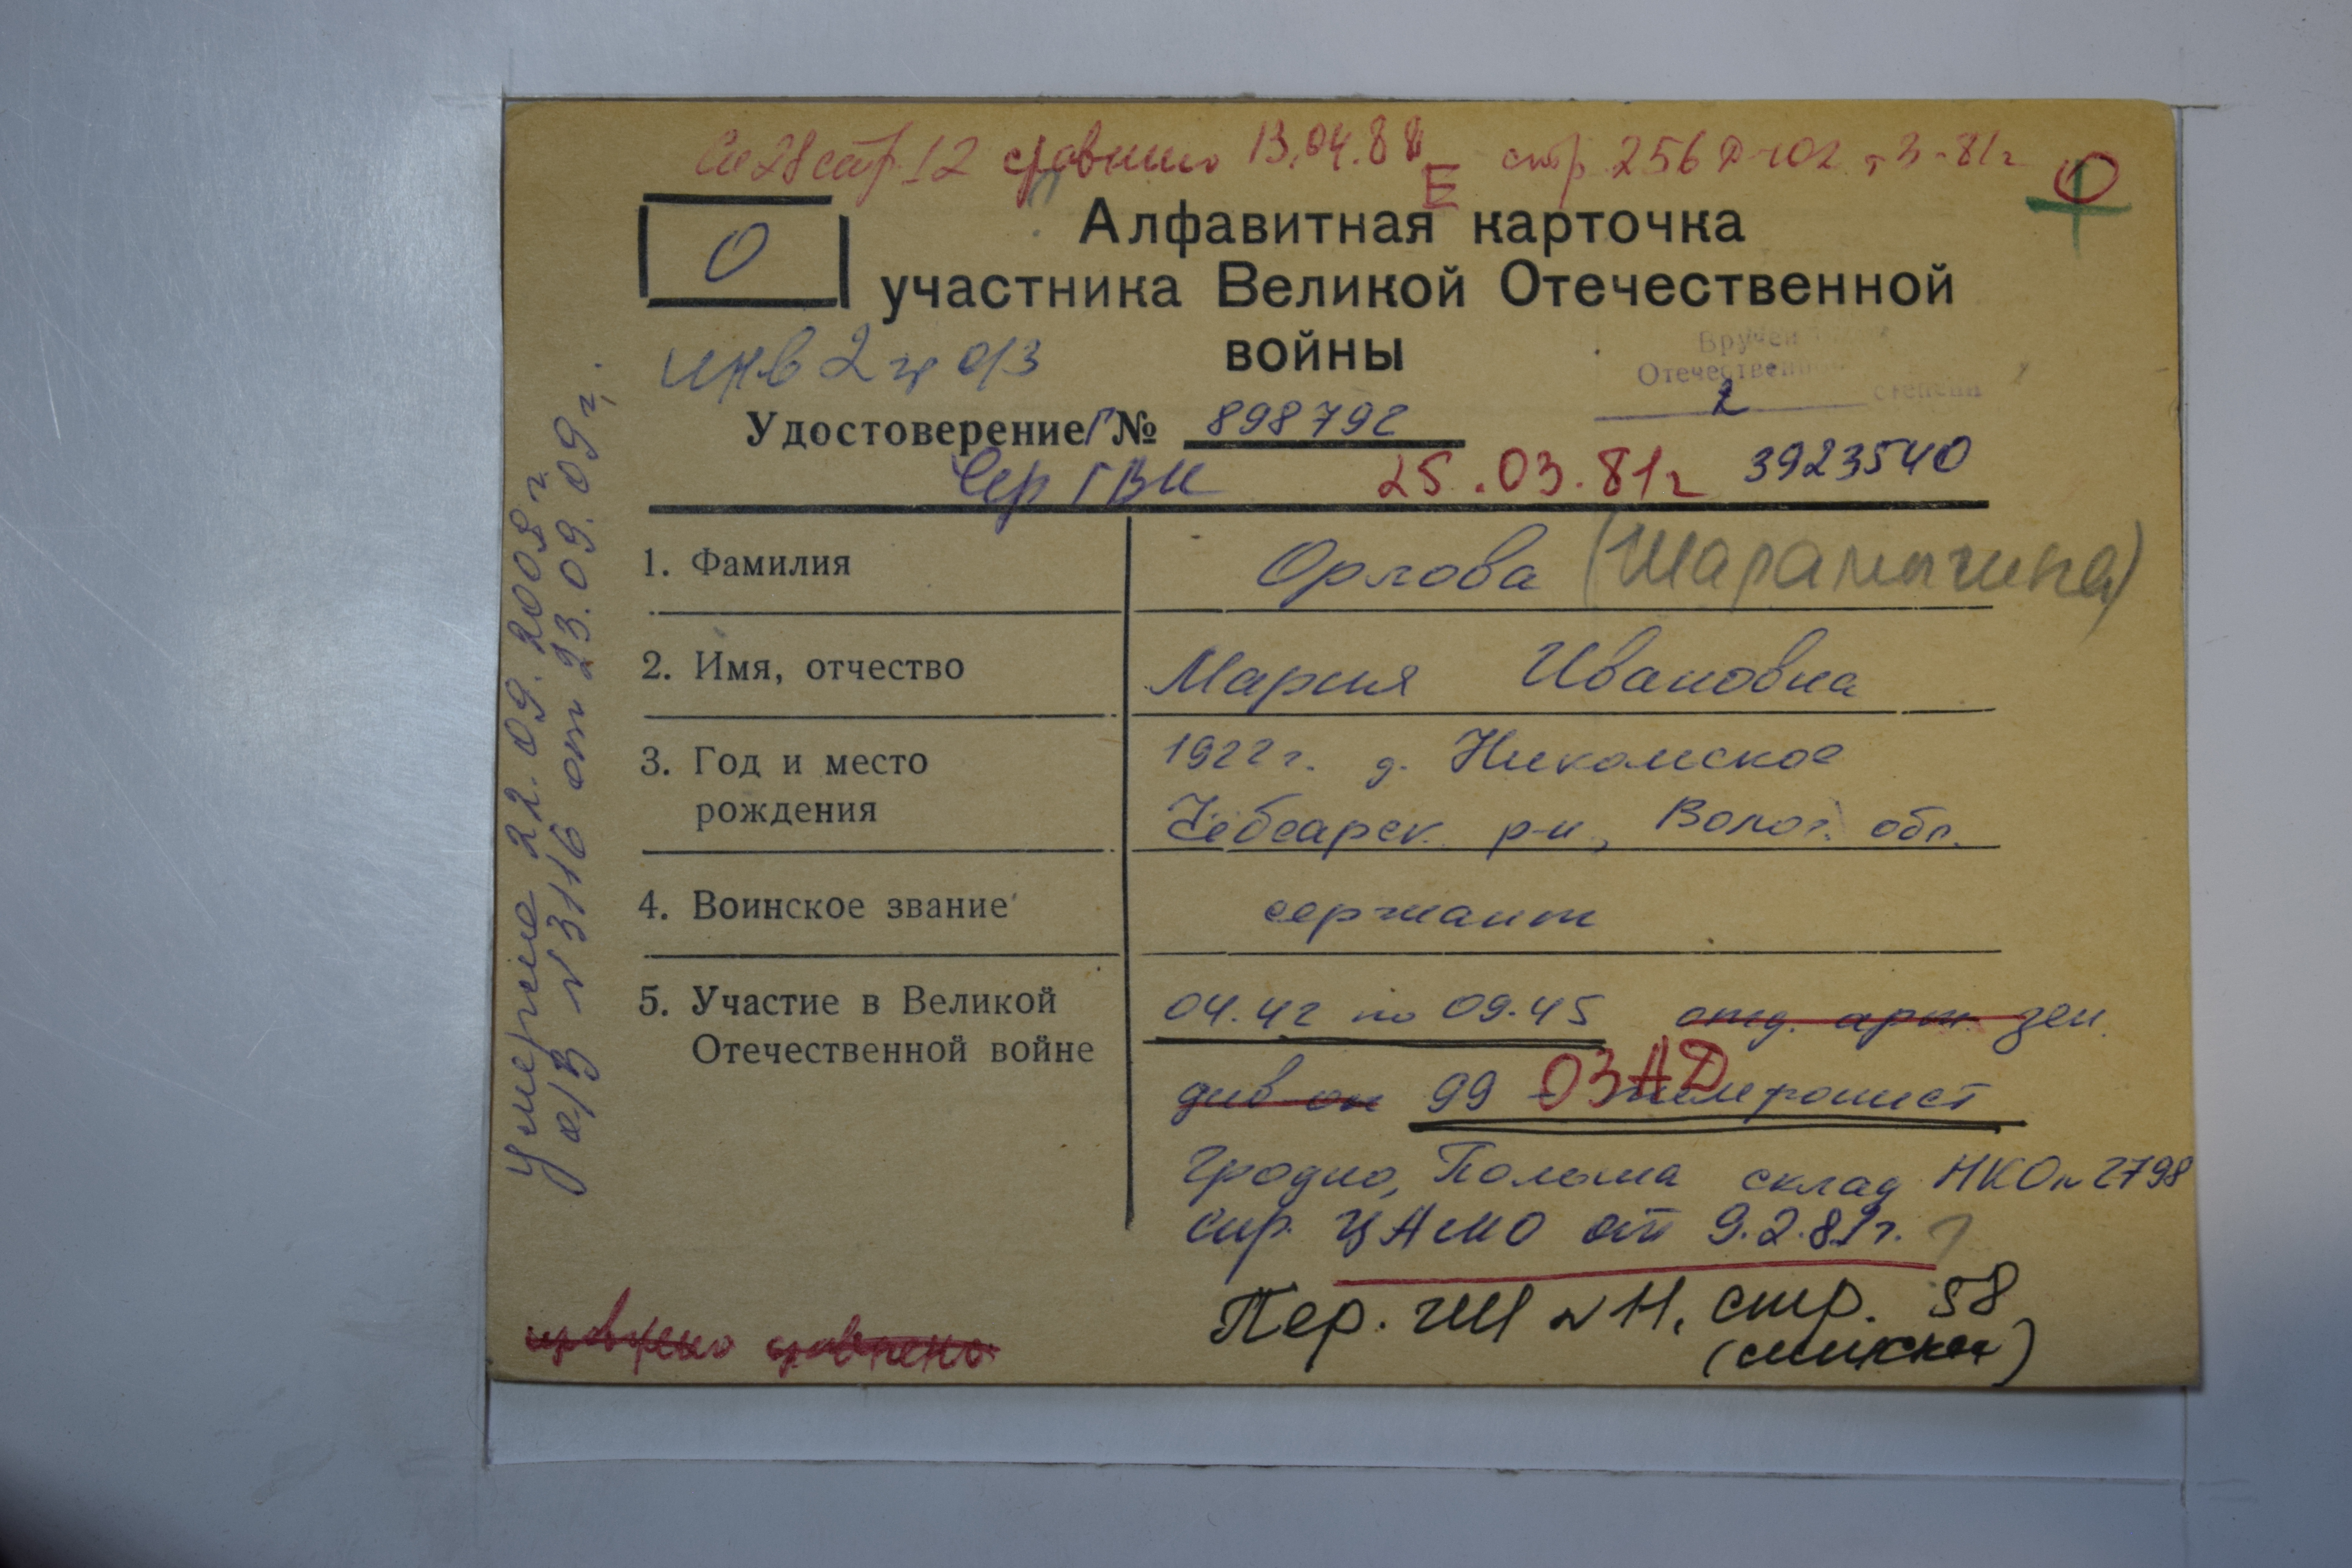 стр. 12 сравнено 13.04.88 Е стр 256 т 3-81г О
О
Алфавитная карточка
участника Великой Отечественной
войны
инв 2 гр о/з
Вручен
Отечествен
2 степени
Удостоверение Г № 898792
Сер ГВК 25.03.81г 3923540
1. Фамилия Орлова (Шарамыгина)
2. Имя, отчество Мария Ивановна
3. Год и место 1922 г. д. Никольское
рождения Чебсарск. р-н, Волог. обл.
4. Воинское звание сержант
5. Участие в Великой 04.42 по 09.45 отд. арт. зен.
Отечественной войне
див он 99 - ОЗАД телефонист
Гродно, Польша склад НКО № 2798
спр. ЦАМО от 9.2.81г.
Пер. чт № 11, стр. 58
(списка)
сравнено сравнено
Умерла 22.09.2009 г.
а/з № 3116 от 23.09.09 г.